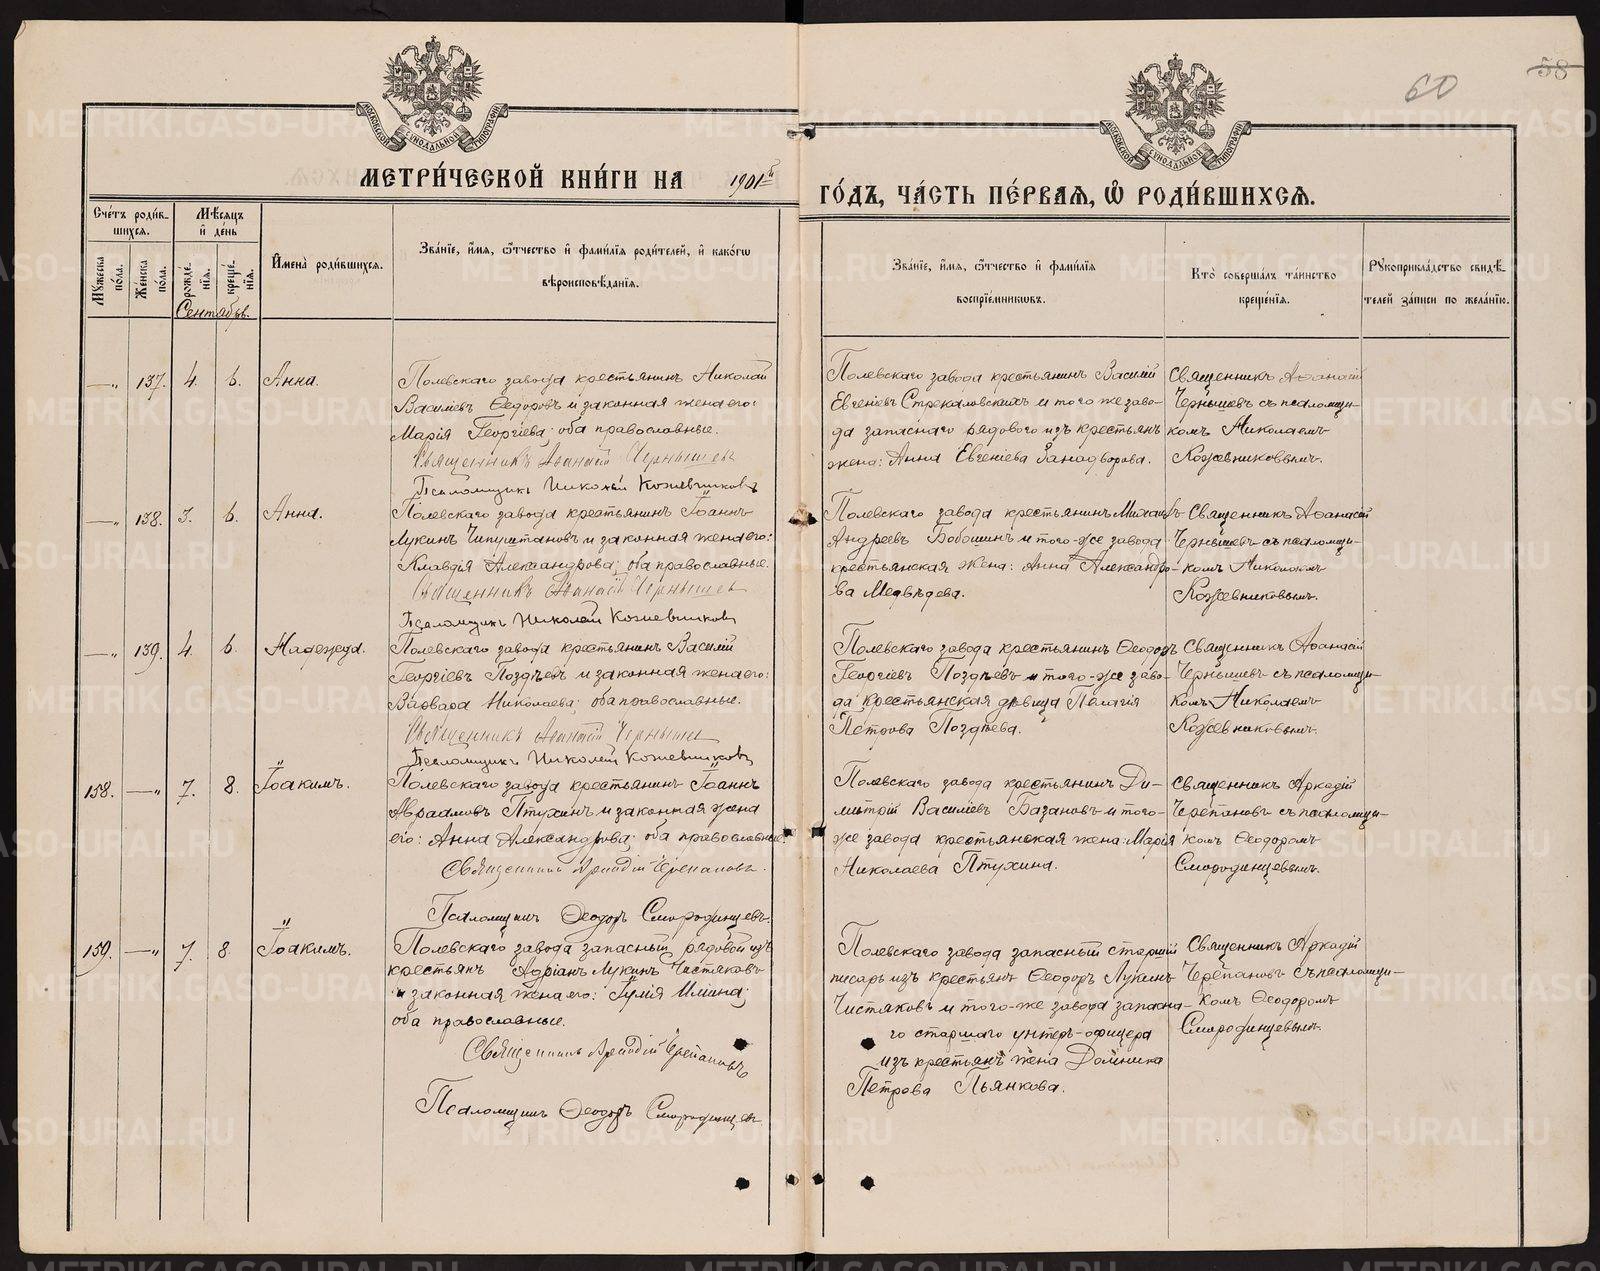 60
58
МЕТРИ́ЧЕСКОЙ КНИ́ГИ НА 1901й
ГО́ДЪ, ЧА́СТЬ ПЕ́РВАѦ, Ѽ РОДИ́ВШИХСѦ.
МОСКОВСКОЙ СѴНОДАЛЬНОЙ ТИПОГРАФІИ
МОСКОВСКОЙ СѴНОДАЛЬНОЙ ТИПОГРАФІИ
Сче́тъ роди́в-
шихся.
Мꙋ́жеска по́ла.
Же́нска по́ла.
Мѣ́сяцъ
и҆ де́нь
рожде́-
нїя.
креще́-
нїя.
Сентябрь.
И҆мена̀ роди́вшихся.
Зва́нїе, и҆́мя, ѻ҆́тчество и҆ фами́лїя роди́телей, и҆ како́гѡ
вѣроисповѣ́данїя.
Зва́нїе, и҆́мя, ѻ҆́тчество и҆ фами́лїя
воспрїе́мникѡвъ.
Кто̀ соверша́лъ та́инство
креще́нїя.
Рꙋкоприкла́дство свидѣ́-
телей за́писи по жела́нїю.
—„ 137. 4. 6. Анна.
Полевскаго завода крестьянинъ Николай
Василіевъ Ѳедоровъ и законная жена его:
Марія Георгіева; оба православные.
Священникъ Аѳанасій Чернышевъ
Псаломщикъ Николай Кожевниковъ
Полевскаго завода крестьянинъ Василій
Евгеніевъ Стрекаловскихъ и того же заво-
да запаснаго рядового изъ крестьянъ
жена: Анна Евгеніева Занадворова.
Священникъ Аѳанасій
Чернышевъ съ псаломщи-
комъ Николаемъ
Кожевниковымъ.
—„ 138. 3. 6. Анна.
Полевскаго завода крестьянинъ Іоаннъ
Лукинъ Чипуштановъ и законная жена его:
Клавдія Александрова; оба православные.
Священникъ Аѳанасій Чернышевъ
Псаломщикъ Николай Кожевниковъ
Полевскаго завода крестьянинъ Михаилъ
Андреевъ Бобошинъ и того-же завода
крестьянская жена: Анна Александро-
ва Медвѣдева.
Священникъ Аѳанасій
Чернышевъ съ псаломщи-
комъ Николаемъ
Кожевниковымъ.
—„ 139. 4. 6. Надежда.
Полевскаго завода крестьянинъ Василій
Георгіевъ Поздѣевъ и законная жена его:
Варвара Николаева; оба православные.
Священникъ Аѳанасій Чернышевъ
Псаломщикъ Николай Кожевниковъ
Полевскаго завода крестьянинъ Ѳеодоръ
Георгіевъ Поздѣевъ и того-же заво-
да крестьянская дѣвица Пелагія
Петрова Поздѣева.
Священникъ Аѳанасій
Чернышевъ съ псаломщи-
комъ Николаемъ
Кожевниковымъ.
158. —„ 7. 8. Іоакимъ.
Полевскаго завода крестьянинъ Іоаннъ
Авраамовъ Птухинъ и законная жена
его: Анна Александрова; оба православные.
Священникъ Аркадій Черепановъ.
Псаломщикъ Ѳеодоръ Смородинцевъ.
Полевскаго завода крестьянинъ Ди-
митрій Василіевъ Базановъ и того-
же завода крестьянская жена: Марія
Николаева Птухина.
Священникъ Аркадій
Черепановъ съ псаломщи-
комъ Ѳеодоромъ
Смородинцевымъ.
159. —„ 7. 8. Іоакимъ.
Полевскаго завода запасный рядовой изъ
крестьянъ Адріанъ Лукинъ Чистяковъ
и законная жена его: Іулія Иліина;
оба православные.
Священникъ Аркадій Черепановъ
Псаломщикъ Ѳеодоръ Смородинцевъ
Полевскаго завода запасный старшій
писарь изъ крестьянъ Ѳеодоръ Лукинъ
Чистяковъ и того-же завода запасна-
го старшаго унтеръ-офицера
изъ крестьянъ жена Домника
Петрова Пьянкова.
Священникъ Аркадій
Черепановъ съ псаломщи-
комъ Ѳеодоромъ
Смородинцевымъ.
METRIKI.GASO-URAL.RU